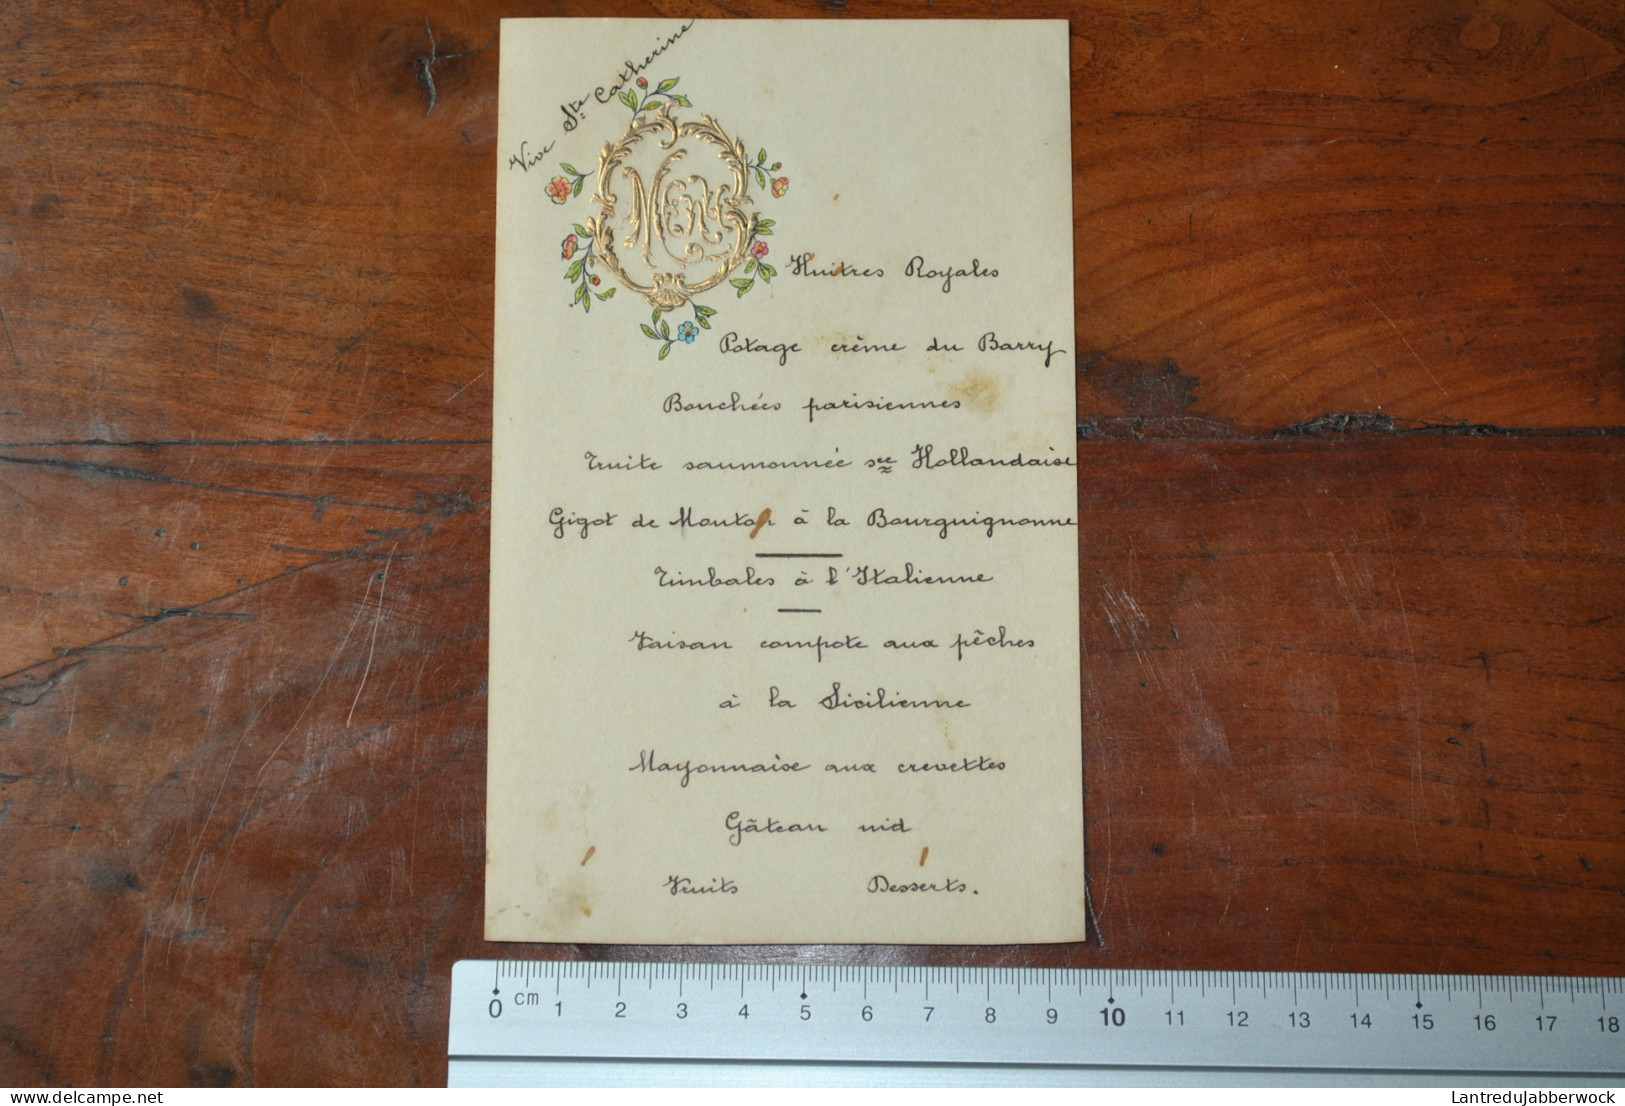 Vive Ste Catherine
Menu
Huitres Royales
Potage crème du Barry
Bouchées parisiennes
Truite saumonnée sce Hollandaise
Gigot de Mouton à la Bourguignonne
Timbales à l'Italienne
Faisan compote aux pêches
à la Sicilienne
Mayonnaise aux crevettes
Gâteau nid
Fruits Desserts.
0 cm 1 2 3 4 5 6 7 8 9 10 11 12 13 14 15 16 17 18
delcampe.net
LantreduJabberwock